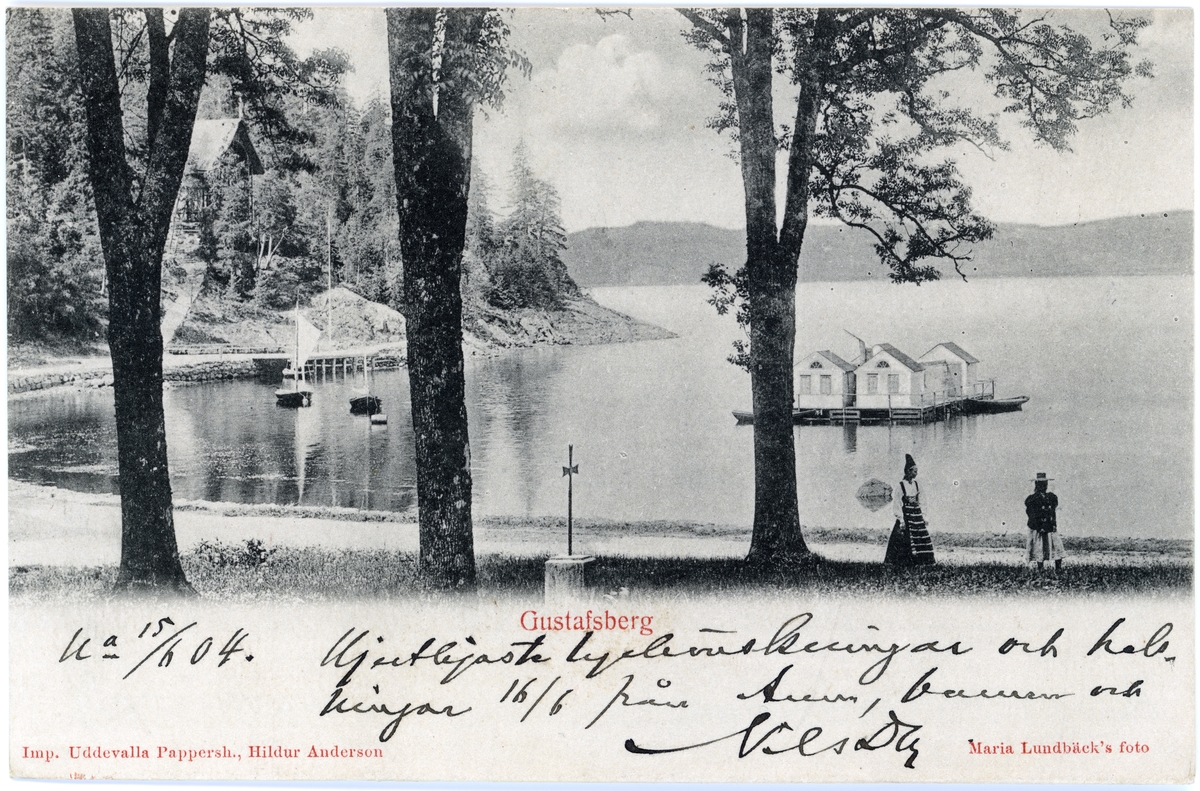 Gustafsberg
Ua 15/6 04. Hjertligaste lyckönskningar och hels-
ningar 16/6 från Anna, barnen och
Nils
Imp. Uddevalla Pappersh., Hildur Anderson
Maria Lundbäck's foto